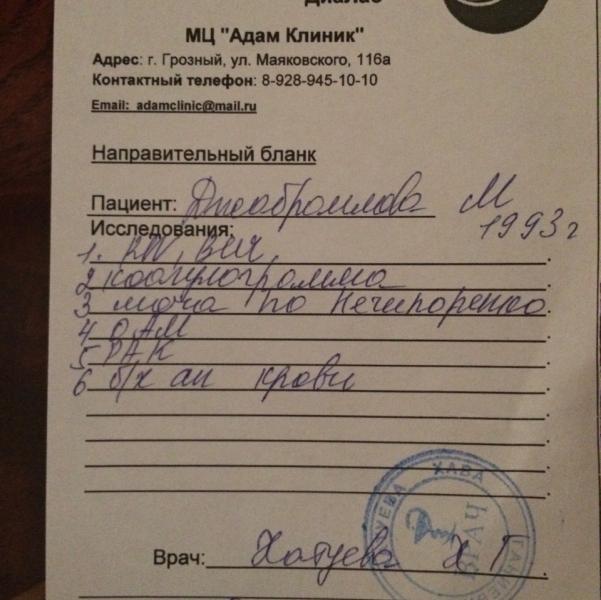 МЦ "Адам Клиник"
Адрес: г. Грозный, ул. Маяковского, 116а
Контактный телефон: 8-928-945-10-10
Email: adamclinic@mail.ru
Направительный бланк
Пациент: Джабраилова М
1993г
Исследования:
1. RW, ВИЧ
2 коагулограмма
3 моча по Нечипоренко
4 ОАМ
5 ОАК
6 б/х ан крови
Врач: Хатуева Х Г
ХАВА
ВРАЧ